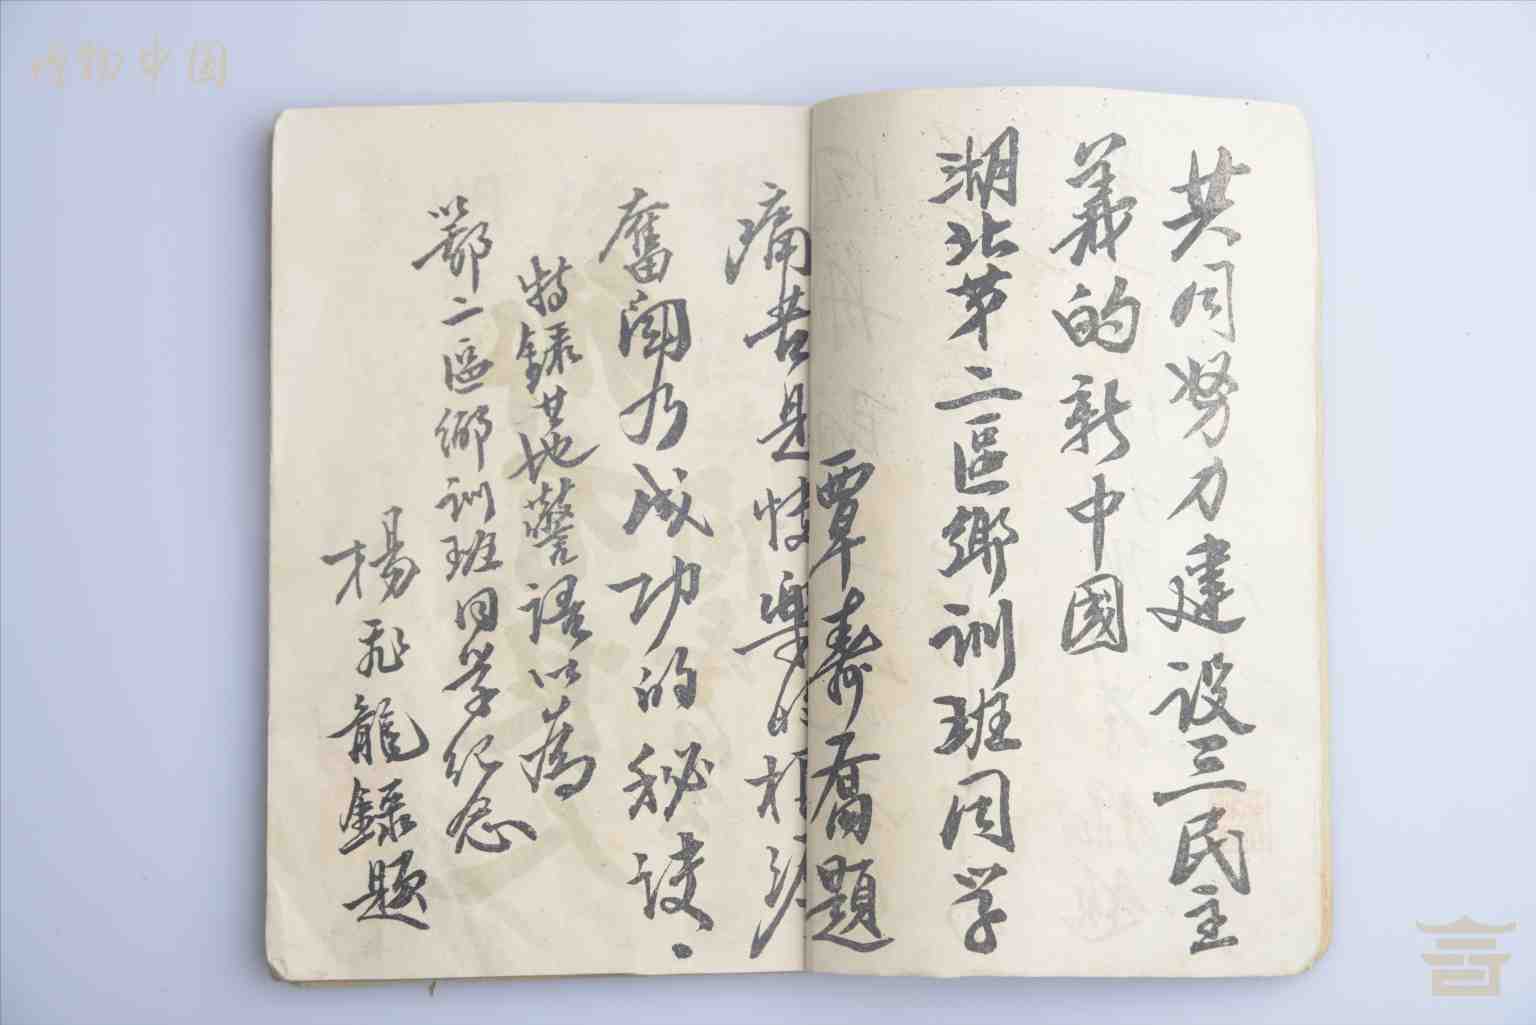 共同努力建设三民主
義的新中國
湖北第二區鄉訓班同学
覃壽喬題
痛苦是快樂的根源
奮鬪乃成功的秘诀、
特錄其地警語以為
鄂二區鄉訓班同学纪念
楊飛龍錄題
博物中国